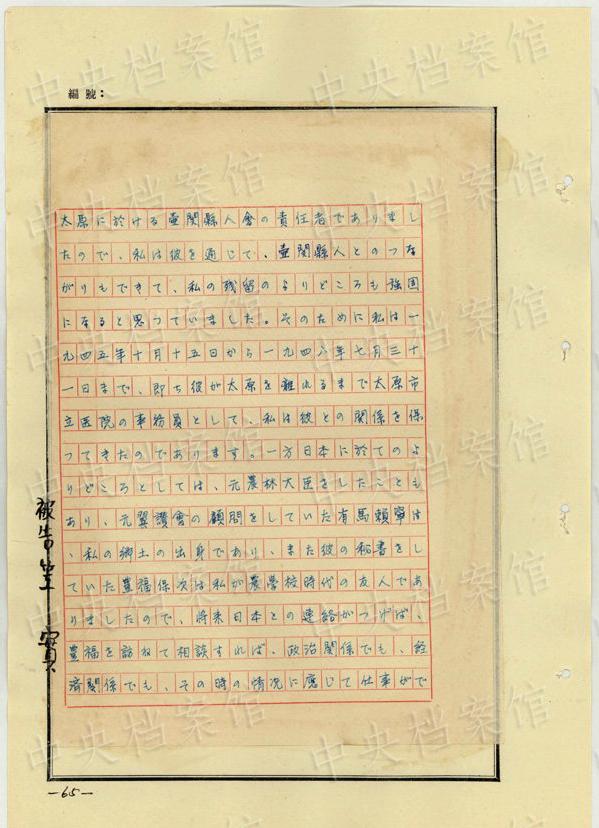 編號：
太原に於ける壷関縣人會の責任者でありまし
たので、私は彼を通じて、壷関縣人とのつな
がりもできて、私の残留のよりどころも強固
になると思つていました。そのために私は一
九四五年十月十五日から一九四六年七月三十
一日まで、即ち彼が太原を離れるまで太原市
立医院の事務員として、私は彼との関係を保
つてきたのであります。一方日本に於てのよ
りどころとしては、元農林大臣をしたことも
あり、元翼讃會の顧問をしていた有馬頼寧は
、私の郷土の出身であり、また彼の秘書をし
ていた豊福保次は私が農學校時代の友人であ
りましたので、将来日本との連絡がつけば、
豊福を訪ねて相談すれば、政治関係でも、経
済関係でも、その時の情况に應じて仕事がで
被告笠 實
—65—
中央档案馆